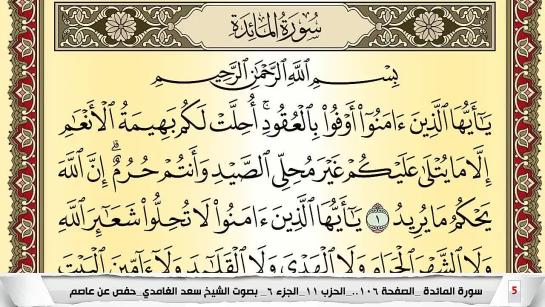 سُورَةُ المَائِدَةِ
بِسْمِ ٱللَّهِ ٱلرَّحْمَٰنِ ٱلرَّحِيمِ
يَٰٓأَيُّهَا ٱلَّذِينَ ءَامَنُوٓا۟ أَوْفُوا۟ بِٱلْعُقُودِ ۚ أُحِلَّتْ لَكُم بَهِيمَةُ ٱلْأَنْعَٰمِ
إِلَّا مَا يُتْلَىٰ عَلَيْكُمْ غَيْرَ مُحِلِّى ٱلصَّيْدِ وَأَنتُمْ حُرُمٌ ۗ إِنَّ ٱللَّهَ
يَحْكُمُ مَا يُرِيدُ ١ يَٰٓأَيُّهَا ٱلَّذِينَ ءَامَنُوا۟ لَا تُحِلُّوا۟ شَعَٰٓئِرَ ٱللَّهِ
وَلَا ٱلشَّهْرَ ٱلْحَرَامَ وَلَا ٱلْهَدْىَ وَلَا ٱلْقَلَٰٓئِدَ وَلَآ ءَآمِّينَ ٱلْبَيْتَ
5 سورة المائدة _الصفحة ١٠٦..الحزب ١١_الجزء ٦_ بصوت الشيخ سعد الغامدي_حفص عن عاصم